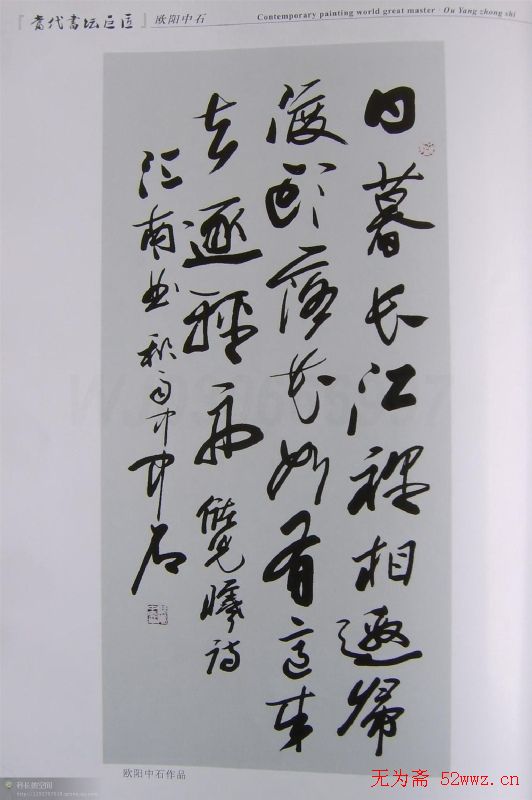 『當代書坛巨匠』欧阳中石
Contemporary painting world great master · Ou Yang zhong shi
日暮长江裡相邀歸
渡頭落花如有意来
去逐輕舟 儲光曦诗
江南曲 中石
欧阳中石作品
无为斋 52wwz.cn
科长的空间